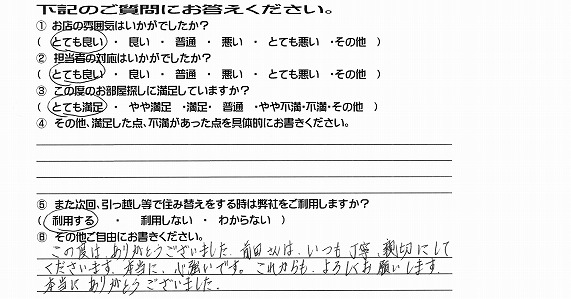 下記のご質問にお答えください。
① お店の雰囲気はいかがでしたか?
( とても良い ・ 良い ・ 普通 ・ 悪い ・ とても悪い ・その他 )
② 担当者の対応はいかがでしたか?
( とても良い ・ 良い ・ 普通 ・ 悪い ・ とても悪い ・その他 )
③ この度のお部屋探しに満足していますか?
( とても満足 ・ やや満足 ・満足・ 普通 ・やや不満・不満・その他 )
④ その他、満足した点、不満があった点を具体的にお書きください。
⑥ また次回、引っ越し等で住み替えをする時は弊社をご利用しますか?
( 利用する ・ 利用しない ・ わからない )
⑧ その他ご自由にお書きください。
この度は、ありがとうございました。前田さんは、いつも丁寧、親切にして
くださいます。本当に、心強いです。これからも、よろしくお願いします。
本当に ありがとう ございました。